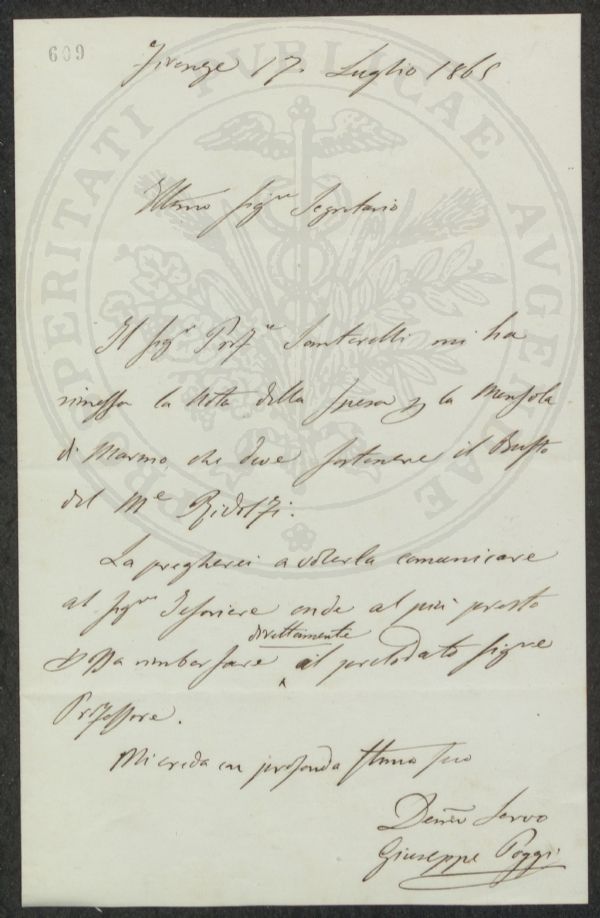 609
Firenze 17. Luglio 1865
Illmo Sigre Segretario
Il Sigr Profre Santarelli mi ha
rimessa la Nota della Spesa p la Mensola
di Marmo, che deve sostenere il Busto
del Mse Ridolfi.
La pregherei a volerla comunicare
al Sigre Tesoriere onde al più presto
direttamente
rimborsare il prelodato Sigre
Professore.
Mi creda con profonda stima suo
Devmo Servo
Giuseppe Poggi
PROSPERITATI PUBLICAE AUGENDAE